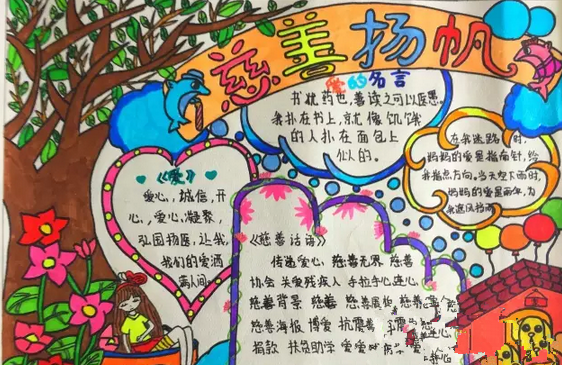 慈善扬帆
爱的名言
书犹药也，善读之可以医愚。
我扑在书上，就像饥饿
的人扑在面包上
似的。
在我迷路时，
妈妈的爱是指南针，给
我指点方向。当天空下雨时，
妈妈的爱是雨伞，为
我遮风挡雨
《爱》
爱心，诚信，开
心，爱心，凝聚，
弘园扬医，让我
我们的爱洒
满人间。
《慈善话语》
传递爱心 慈善无界 慈善
协会 关爱残疾人 手拉手心连心
慈善背景 慈善 慈善展板 慈善
慈善海报 博爱 抗震
捐款 扶贫助学 爱